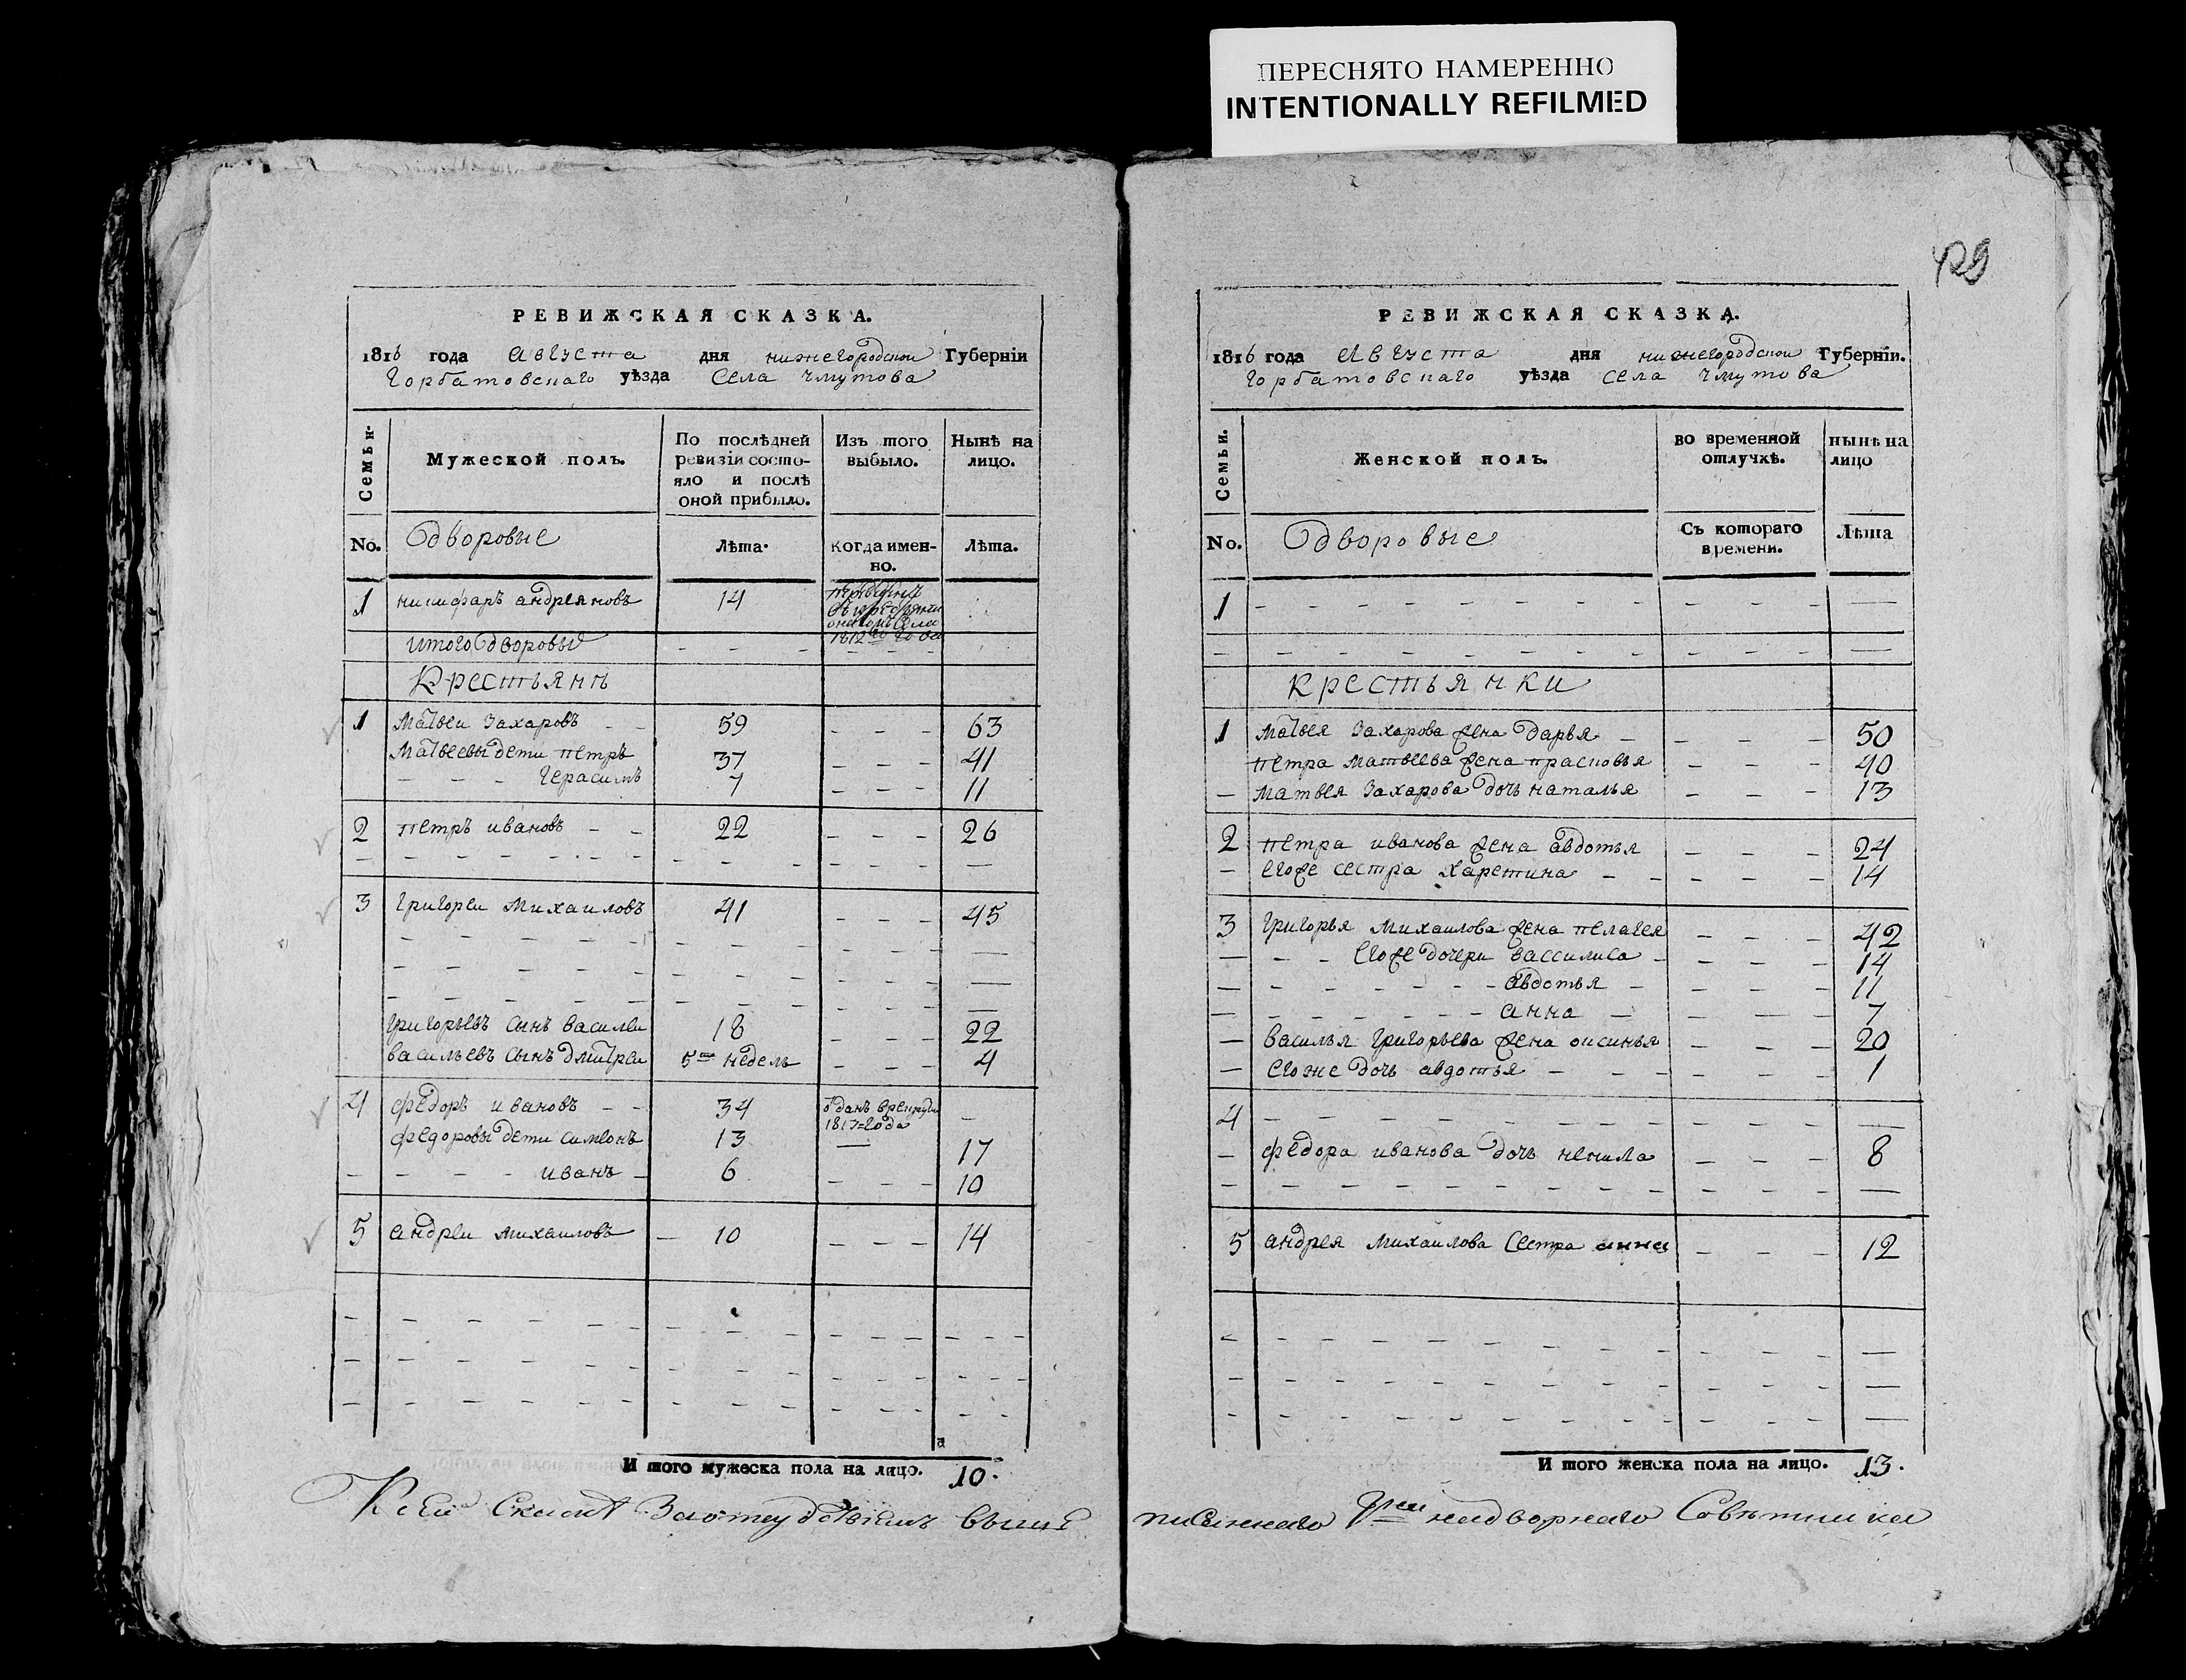 ПЕРЕСНЯТО НАМЕРЕННО
INTENTIONALLY REFILMED
РЕВИЖСКАЯ СКАЗКА.
1816 года Августа дня нижегородскои Губерніи
Горбатовскаго уѣзда Села чмутова
Семьи.
Мужеской полъ.
По послѣдней ревизіи состояло и послѣ оной прибыло.
Изъ того выбыло.
Нынѣ на лицо.
No. Дворовые Лѣта. когда именно. Лѣта.
1 никифаръ андреяновъ 14
1812го года
Итого дворовы - - - - - -
Крестьянъ
1 Матвеи Захаровъ - - 59 - - - 63
Матвеевы дети петръ 37 - - - 41
- - - герасимъ 7 - - - 11
2 петръ ивановъ - - 22 - - - 26
3 григореи Михаиловъ 41 - - - 45
григорьевъ сынъ василеи 18 - - - 22
васильевъ сынъ дмитреи 5ть недель - - - 4
4 федоръ ивановъ - - 34 отданъ врекруты 1817=года -
федоровы дети симионъ 13 — 17
- - - - иванъ - 6 - - - 10
5 андреи михаиловъ - 10 - - - 14
И того мужеска пола на лицо. 10.
429
РЕВИЖСКАЯ СКАЗКА.
1816 года Августа дня нижегородскои Губерніи.
горбатовскаго уѣзда села чмутова
Семьи.
Женской полъ.
во временной отлучкѣ.
нынѣ на лицо
No. Дворовые Съ котораго времени. Лѣта
1 - - - - - - - - - - - —
крестьянки
1 Матвея Захарова жена дарья - - - - 50
петра матвеева жена прасковья - - - 40
- матвея захарова дочь наталья - - - 13
2 петра иванова жена авдотья - - - 24
- егоже сестра харетина - - - - - 14
3 григорья михаилова жена пелагея - - - 42
— - - егоже дочери вассилиса - - - - 14
— - - - - - - - авдотья - - - - 11
— - - - - - - анна — - — - 7
— василья григорьева жена оксинья - - - 20
— егоже дочь авдотья - - - - - - 1
4 - - - - - - - - - - - - —
- федора иванова дочь ненила - - - 8
5 андрея михаилова сестра анна - - - 12
И того женска пола на лицо. 13.
Ксеи Скаске выше
писаннаго надворнаго Советника